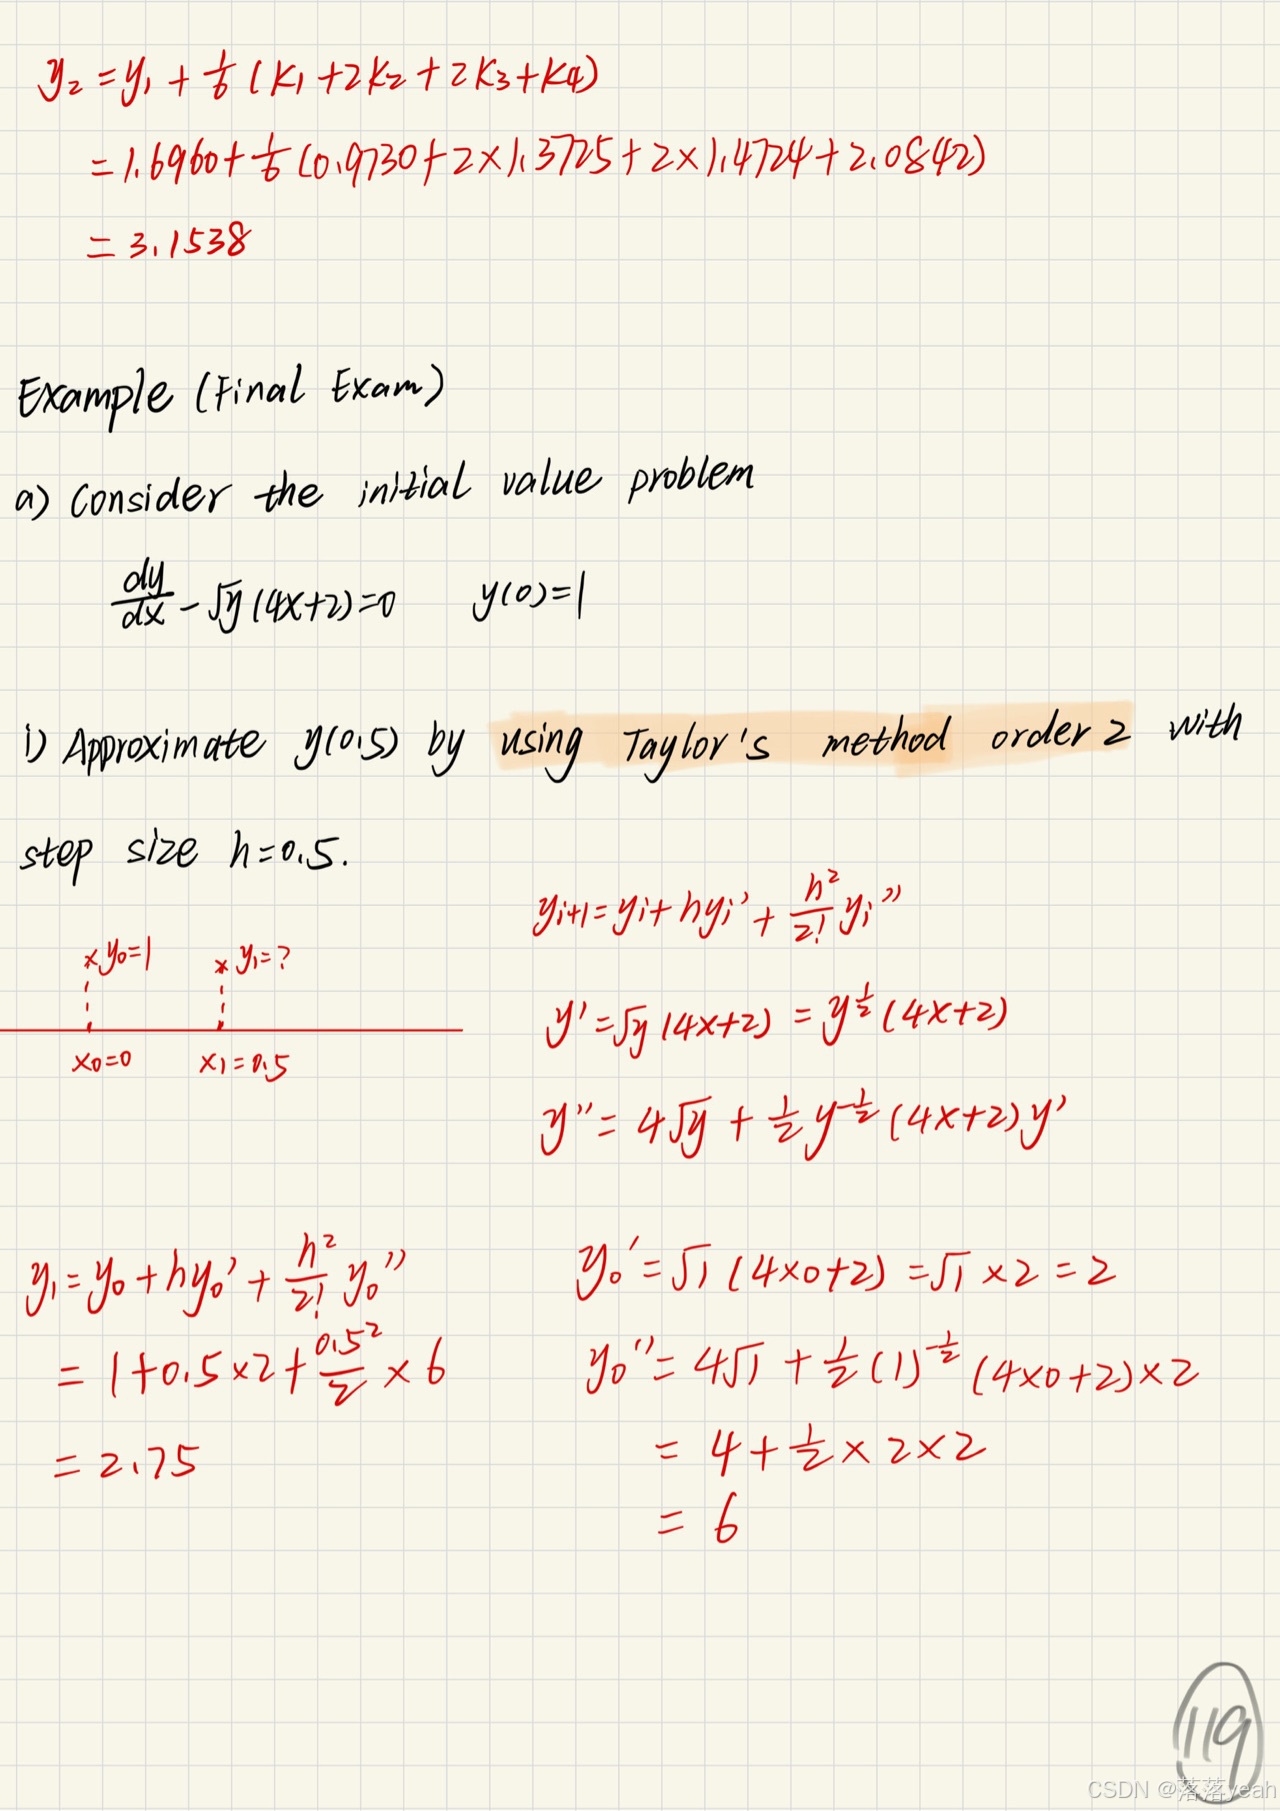 y₂ = y₁ + 1/6 (K₁ + 2K₂ + 2K₃ + K₄)
= 1.6960 + 1/6 (0.9730 + 2×1.3725 + 2×1.4724 + 2.0842)
= 3.1538
Example (Final Exam)
a) Consider the initial value problem
dy/dx - √y (4x+2) = 0 y(0) = 1
i) Approximate y(0.5) by using Taylor's method order 2 with
step size h = 0.5.
yᵢ₊₁ = yᵢ + hyᵢ' + h²/2! yᵢ''
y₀ = 1 y₁ = ?
x₀ = 0 x₁ = 0.5
y' = √y (4x+2) = y^(1/2) (4x+2)
y'' = 4√y + 1/2 y^(-1/2) (4x+2) y'
y₁ = y₀ + hy₀' + h²/2! y₀''
= 1 + 0.5×2 + 0.5²/2 × 6
= 2.75
y₀' = √1 (4×0+2) = √1 × 2 = 2
y₀'' = 4√1 + 1/2 (1)^(-1/2) (4×0+2) × 2
= 4 + 1/2 × 2 × 2
= 6
119
CSDN @落落yeah